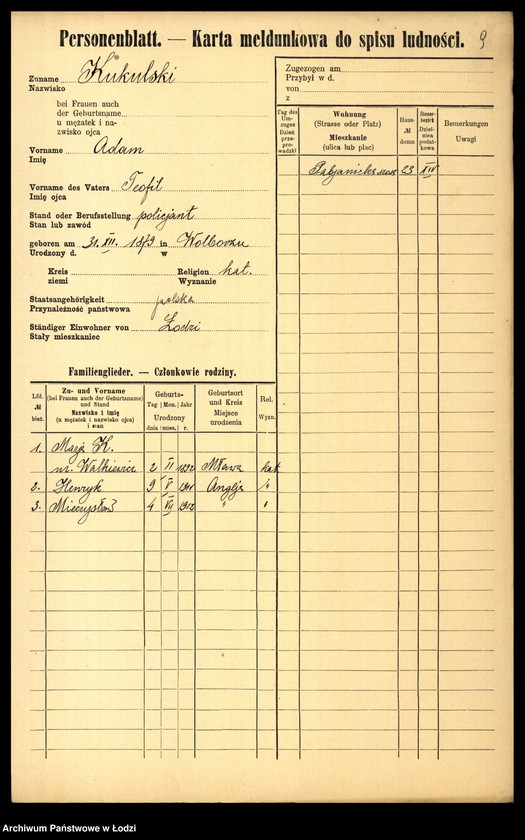 Personenblatt. — Karta meldunkowa do spisu ludności. 9
Zuname Kukulski
Nazwisko
bei Frauen auch
der Geburtsname
u mężatek i na-
zwisko ojca
Vorname Adam
Imię
Vorname des Vaters Teofil
Imię ojca
Stand oder Berufsstellung policjant
Stan lub zawód
geboren am 31. XII. 1879 in Wolborzu
Urodzony d. w
Kreis Religion kat.
ziemi Wyznanie
Staatsangehörigkeit polska
Przynależność państwowa
Ständiger Einwohner von Łodzi
Stały mieszkaniec
Zugezogen am
Przybył w d.
von
z
Tag des Um-zuges Dzień prze-prowadzki
Wohnung (Strasse oder Platz) Mieszkanie (ulica lub plac)
Haus- № domu
Steuer-bezirk Dziel-nica podat-kowa
Bemerkungen Uwagi
Pabjanicka szosa 23 XIV
Familienglieder. — Członkowie rodziny.
Lfd. № bież.
Zu- und Vorname (bei Frauen auch der Geburtsname) und Stand Nazwisko i imię (u mężatek i nazwisko ojca) i stan
Geburts- Tag Mon. Jahr Urodzony dnia mies. r.
Geburtsort und Kreis Miejsce urodzenia
Rel. Wyzn.
1. K.
2 II 1892 Mława kat.
2. Henryk 9 V 1911 Anglja "
3. Mieczysław 4 VII 1912 " "
Archiwum Państwowe w Łodzi